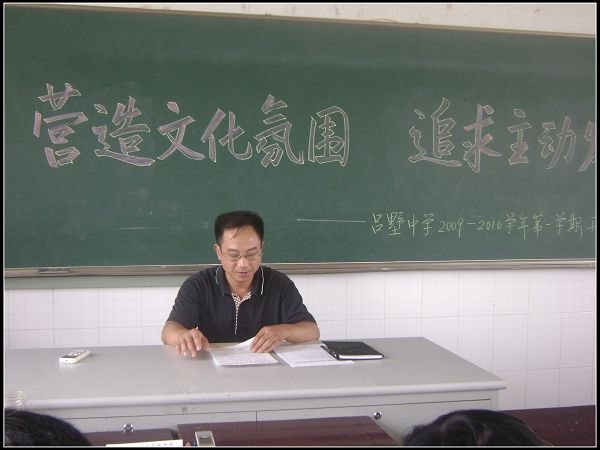 营造文化氛围 追求主动
——吕墅中学2009-2010学年第一学期